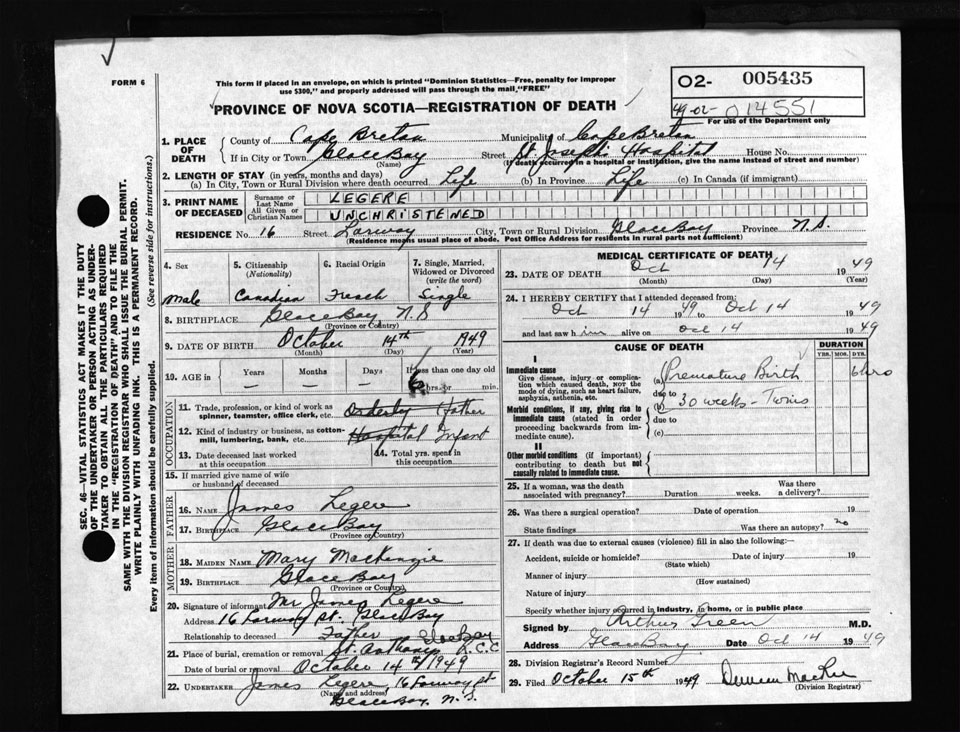 FORM 6
This form if placed in an envelope, on which is printed "Dominion Statistics—Free, penalty for improper
use $300," and properly addressed will pass through the mail, "FREE"
PROVINCE OF NOVA SCOTIA—REGISTRATION OF DEATH
O2- 005435
49-02- 014551
For use of the Department only
1. PLACE OF DEATH
County of Cape Breton Municipality of Cape Breton
If in City or Town Glace Bay Street St. Joseph's Hospital House No.
(Name) (If death occurred in a hospital or institution, give the name instead of street and number)
2. LENGTH OF STAY (in years, months and days)
(a) In City, Town or Rural Division where death occurred Life (b) In Province Life (c) In Canada (if immigrant)
3. PRINT NAME OF DECEASED
Surname or Last Name LEGERE
All Given or Christian Names UNCHRISTENED
RESIDENCE No. 16 Street City, Town or Rural Division Glace Bay Province N.S.
(Residence means usual place of abode. Post Office Address for residents in rural parts not sufficient)
4. Sex
Male
5. Citizenship
(Nationality)
Canadian
6. Racial Origin
French
7. Single, Married, Widowed or Divorced
(write the word)
Single
8. BIRTHPLACE Glace Bay N.S
(Province or Country)
9. DATE OF BIRTH October 14th 1949
(Month) (Day) (Year)
10. AGE in Years Months Days If less than one day old
— — — 6 hrs. or min.
OCCUPATION
11. Trade, profession, or kind of work as spinner, teamster, office clerk, etc. Orderly Father
12. Kind of industry or business, as cotton-mill, lumbering, bank, etc. Hospital Infant
13. Date deceased last worked at this occupation
14. Total yrs. spent in this occupation
15. If married give name of wife or husband of deceased
FATHER
16. NAME James Legere
17. BIRTHPLACE Glace Bay
(Province or Country)
MOTHER
18. MAIDEN NAME Mary MacKenzie
19. BIRTHPLACE Glace Bay
(Province or Country)
20. Signature of informant Mr James Legere
Address 16 St. Glace Bay
Relationship to deceased Father
21. Place of burial, cremation or removal St. Anthony R.C.C Glace Bay
Date of burial or removal October 14th/1949
22. UNDERTAKER James Legere 16 St
(Name and address)
Glace Bay, N.S.
MEDICAL CERTIFICATE OF DEATH
23. DATE OF DEATH Oct 14 1949
(Month) (Day) (Year)
24. I HEREBY CERTIFY that I attended deceased from:
Oct 14 1949 to Oct 14 1949
and last saw him alive on Oct 14 1949
CAUSE OF DEATH
DURATION
YRS. MOS. DYS.
I
Immediate cause
Give disease, injury or complication which caused death, NOT the mode of dying, such as heart failure, asphyxia, asthenia, etc.
(a) Premature Birth 6 hrs
due to
Morbid conditions, if any, giving rise to immediate cause (stated in order proceeding backwards from immediate cause).
(b) 30 weeks - Twins
due to
(c)
II
Other morbid conditions (if important) contributing to death but not causally related to immediate cause.
25. If a woman, was the death associated with pregnancy? Duration weeks. Was there a delivery?
26. Was there a surgical operation? Date of operation 19
State findings Was there an autopsy? no
27. If death was due to external causes (violence) fill in also the following:—
Accident, suicide or homicide? Date of injury 19
(State which)
Manner of injury
(How sustained)
Nature of injury
Specify whether injury occurred in industry, in home, or in public place
Signed by Arthur Green M.D.
Address Glace Bay Date Oct 14 1949
28. Division Registrar's Record Number
29. Filed October 15th 1949
(Division Registrar)
SEC. 46—VITAL STATISTICS ACT MAKES IT THE DUTY
OF THE UNDERTAKER OR PERSON ACTING AS UNDER-
TAKER TO OBTAIN ALL THE PARTICULARS REQUIRED
IN THE "REGISTRATION OF DEATH" AND TO FILE THE
SAME WITH THE DIVISION REGISTRAR WHO SHALL ISSUE THE BURIAL PERMIT.
WRITE PLAINLY WITH UNFADING INK. THIS IS A PERMANENT RECORD.
Every item of information should be carefully supplied. (See reverse side for instructions.)